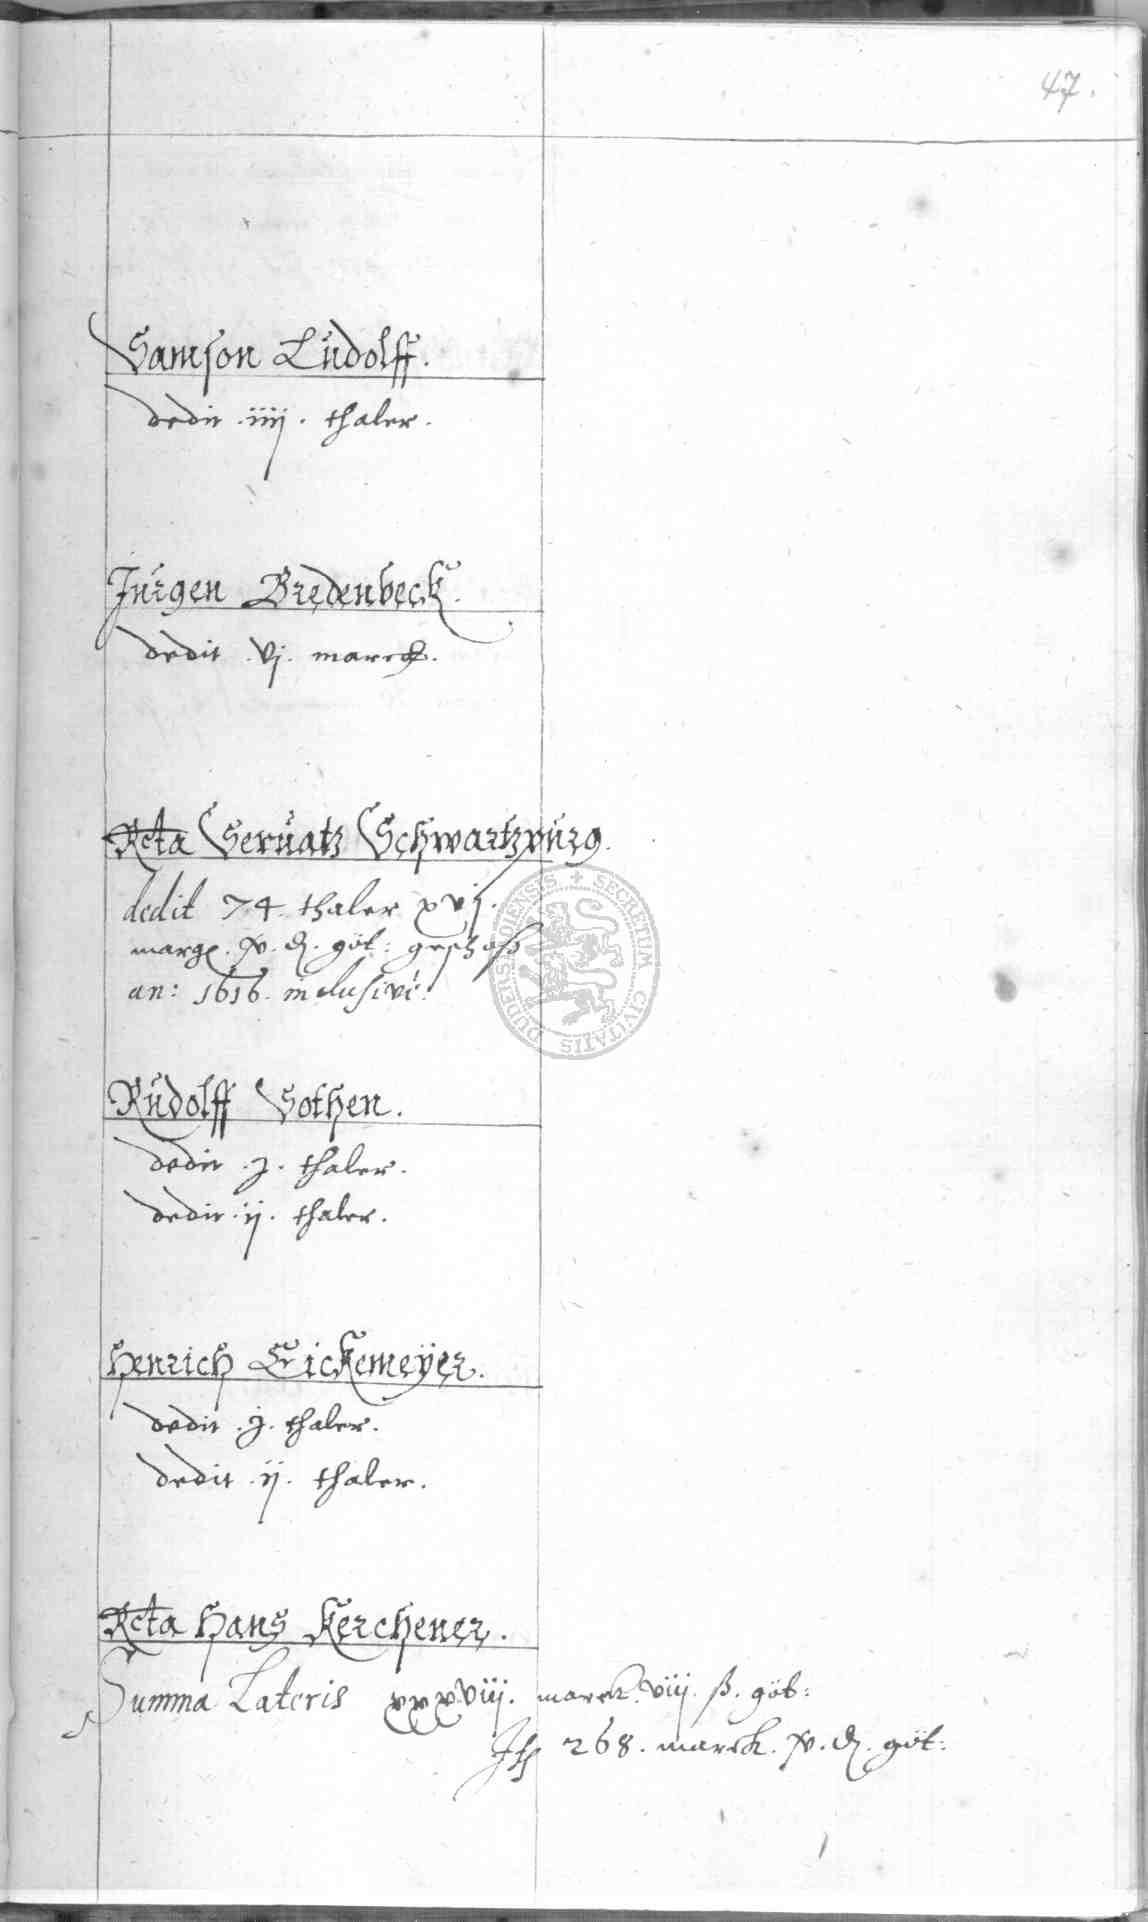 47.
Samson Ludolff.
dedit .iiij. thaler.
Jurgen Bredenbeck.
dedit .vj. marck.
Rcta Servatz Schwartzburg.
dedit 74. thaler xvij.
marck. xv. d. göt: geschoss
an: 1616. inclusivè.
SECRETUM CIVITATIS DUDERSTADIENSIS
Rudolff Sothen.
dedit .j. thaler.
dedit .ij. thaler.
Henrich Eickemeÿer.
dedit .j. thaler.
dedit .ij. thaler.
Rcta Hans Kerchener.
Summa Lateris xxxviij. marck. viij. ß. göt:
268. marck. xv. d. göt: